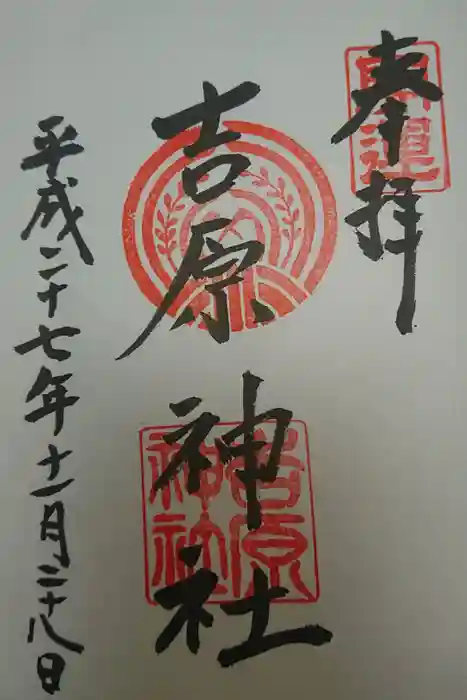 奉拝
開運
吉原神社
吉原神社
平成二十七年十一月二十八日